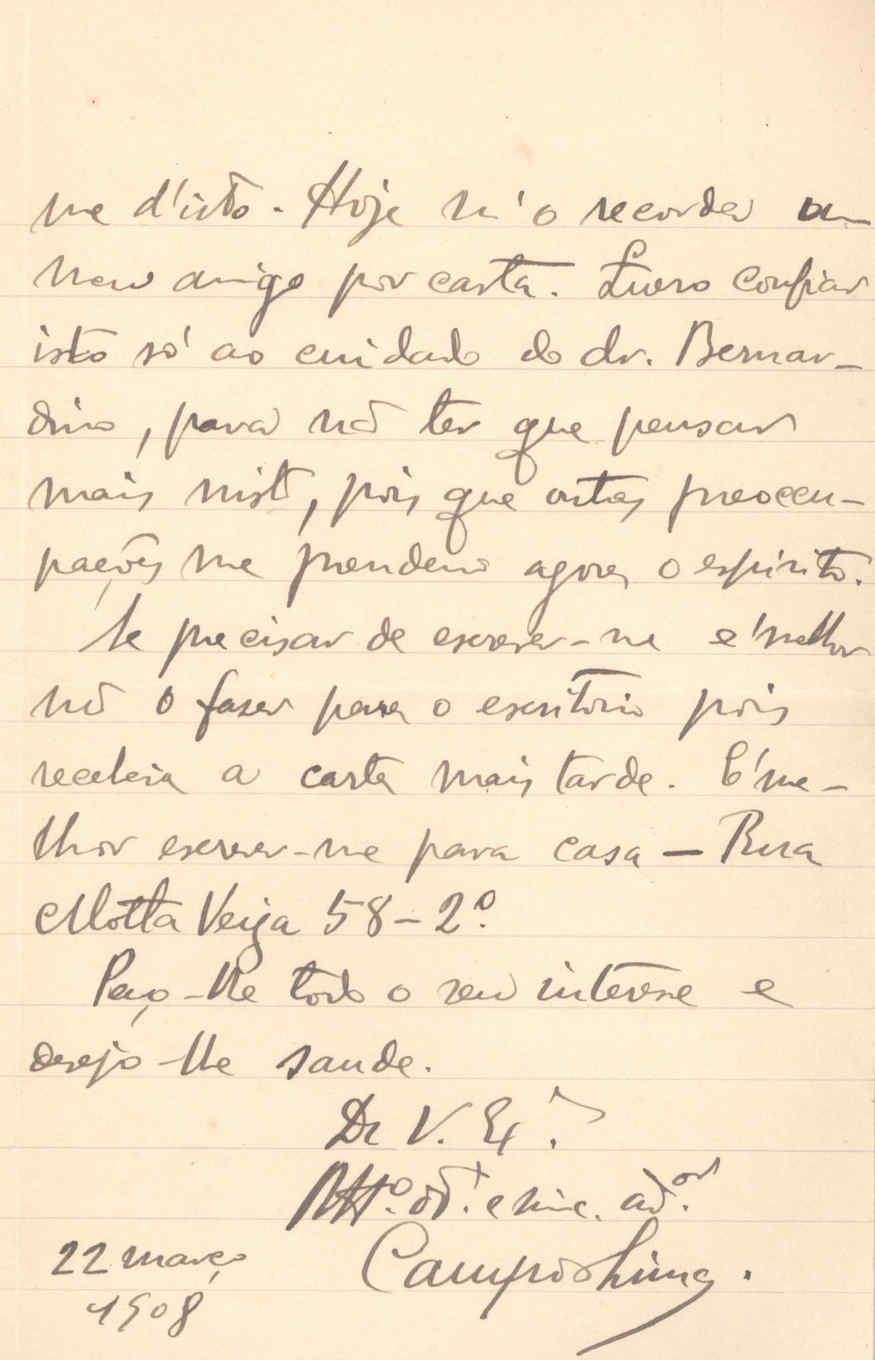 me d'isto. Hoje m'o recordou um
meu amigo por carta. Quero confiar
isto só ao cuidado do dr. Bernar-
dino, para não ter que pensar
mais nisto, pois que outras preoccu-
pações me prendem agora o espirito.
Se precisar de escrever-me é melhor
não o fazer para o escritorio pois
receberia a carta mais tarde. É me-
lhor escrever-me para casa — Rua
Motta Veiga 58 - 2º.
Peço-lhe todo o seu interesse e
desejo-lhe saude.
De V. Ex.ª
Att.º e sinc. ad.or
Campos Lima.
22 março
1908